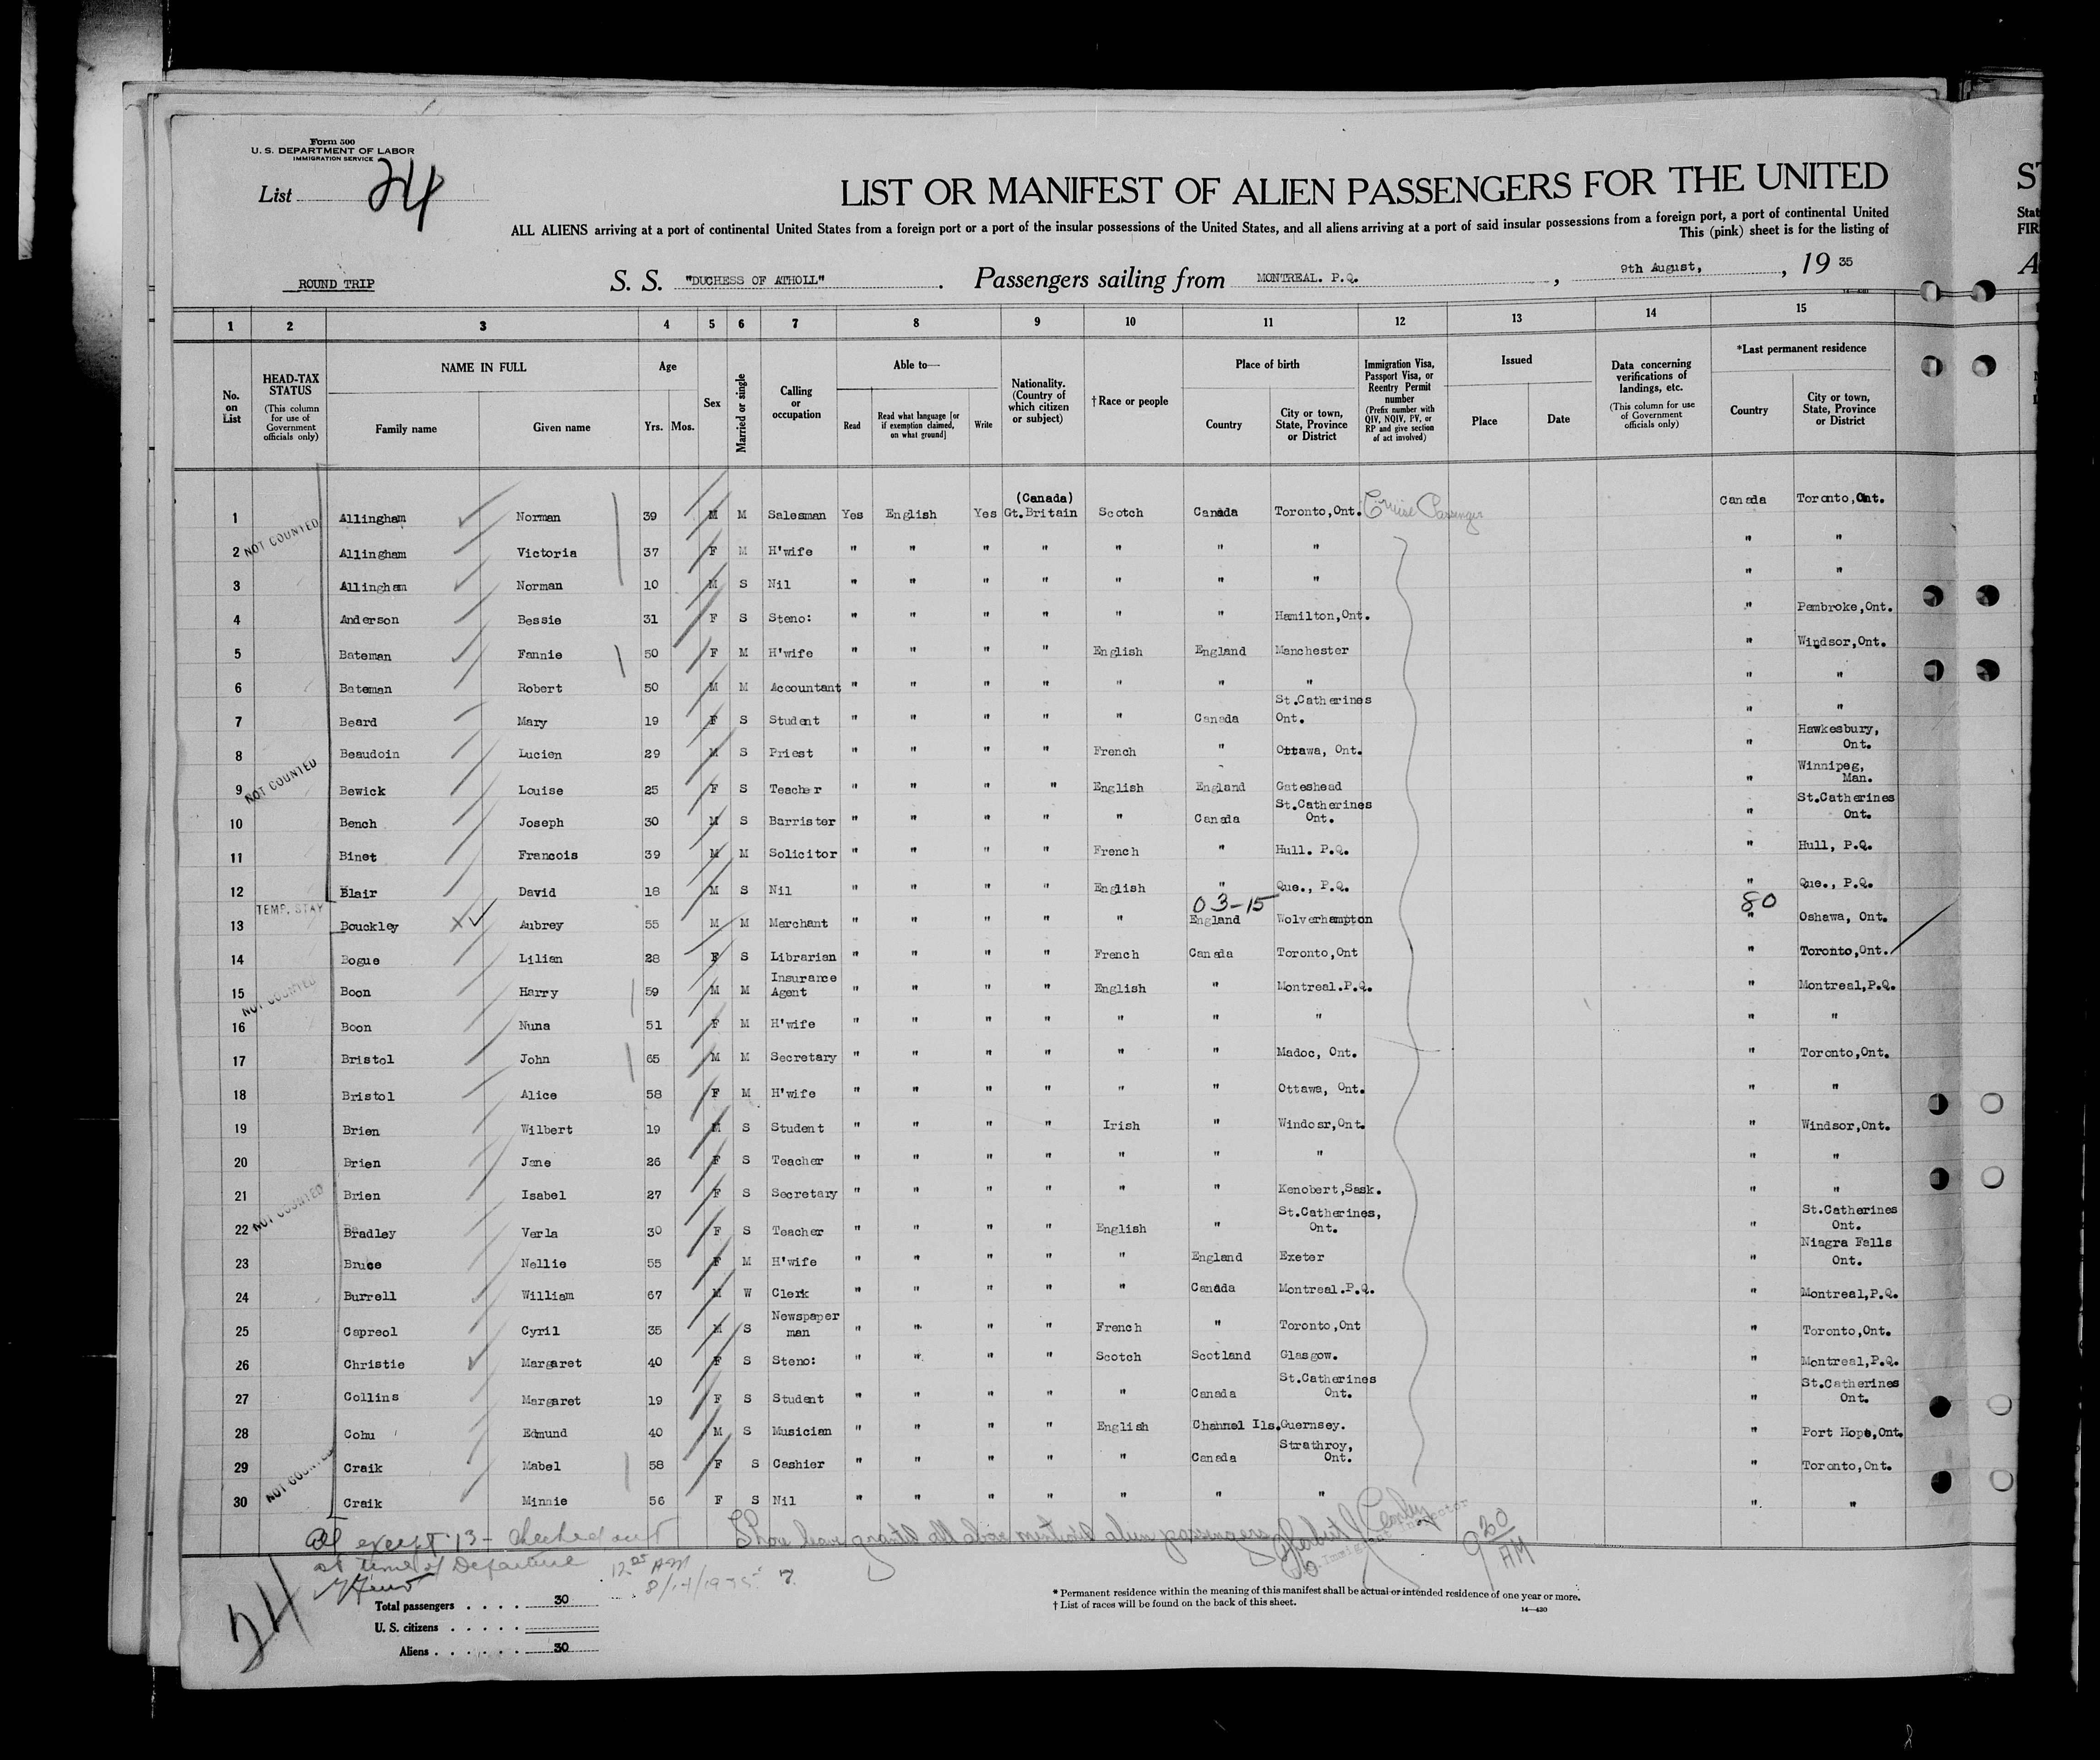 Form 500
U. S. DEPARTMENT OF LABOR
IMMIGRATION SERVICE
List 24
LIST OR MANIFEST OF ALIEN PASSENGERS FOR THE UNITED
ST
ALL ALIENS arriving at a port of continental United States from a foreign port or a port of the insular possessions of the United States, and all aliens arriving at a port of said insular possessions from a foreign port, a port of continental United
Stat
This (pink) sheet is for the listing of
FIR
ROUND TRIP S. S. "DUCHESS OF ATHOLL". Passengers sailing from MONTREAL. P.Q., 9th August, , 19 35
A
1 2 3 4 5 6 7 8 9 10 11 12 13 14 15
No. on List
HEAD-TAX STATUS (This column for use of Government officials only)
NAME IN FULL
Family name Given name
Age
Yrs. Mos.
Sex
Married or single
Calling or occupation
Able to—
Read
Read what language [or if exemption claimed, on what ground]
Write
Nationality. (Country of which citizen or subject)
†Race or people
Place of birth
Country
City or town, State, Province or District
Immigration Visa, Passport Visa, or Reentry Permit number (Prefix number with QIV, NQIV, PV, or RP and give section of act involved)
Issued
Place Date
Data concerning verifications of landings, etc. (This column for use of Government officials only)
*Last permanent residence
Country
City or town, State, Province or District
1 Allingham Norman 39 M M Salesman Yes English Yes (Canada) Gt.Britain Scotch Canada Toronto,Ont. Cruise Passenger Canada Toronto,Ont.
NOT COUNTED
2 Allingham Victoria 37 F M H'wife " " " " " " " " "
3 Allingham Norman 10 M S Nil " " " " " " " " "
4 Anderson Bessie 31 F S Steno: " " " " " " Hamilton,Ont. " Pembroke,Ont.
5 Bateman Fannie 50 F M H'wife " " " " English England Manchester " Windsor,Ont.
6 Bateman Robert 50 M M Accountant " " " " " " " " "
7 Beard Mary 19 F S Student " " " " " Canada St.Catherines Ont. " "
8 Beaudoin Lucien 29 M S Priest " " " " French " Ottawa, Ont. " Hawkesbury, Ont.
NOT COUNTED
9 Bewick Louise 25 F S Teacher " " " " English England Gateshead " Winnipeg, Man.
10 Bench Joseph 30 M S Barrister " " " " " Canada St.Catherines Ont. " St.Catherines Ont.
11 Binet Francois 39 M M Solicitor " " " " French " Hull. P.Q. " Hull, P.Q.
12 Blair David 18 M S Nil " " " " English " Que., P.Q. " Que., P.Q.
TEMP. STAY 03-15 80
13 Bouckley Aubrey 55 M M Merchant " " " " " England Wolverhampton " Oshawa, Ont.
14 Bogue Lilian 28 F S Librarian " " " " French Canada Toronto,Ont " Toronto,Ont.
15 Boon Harry 59 M M Insurance Agent " " " " English " Montreal.P.Q. " Montreal,P.Q.
NOT COUNTED
16 Boon Nuna 51 F M H'wife " " " " " " " " "
17 Bristol John 65 M M Secretary " " " " " " Madoc, Ont. " Toronto,Ont.
18 Bristol Alice 58 F M H'wife " " " " " " Ottawa, Ont. " "
19 Brien Wilbert 19 M S Student " " " " Irish " Windosr,Ont. " Windsor,Ont.
20 Brien Jane 26 F S Teacher " " " " " " " " "
21 Brien Isabel 27 F S Secretary " " " " " " Kenobert,Sask. " "
NOT COUNTED
22 Bradley Verla 30 F S Teacher " " " " English " St.Catherines, Ont. " St.Catherines Ont.
23 Bruce Nellie 55 F M H'wife " " " " " England Exeter " Niagra Falls Ont.
24 Burrell William 67 M W Clerk " " " " " Canada Montreal.P.Q. " Montreal,P.Q.
25 Capreol Cyril 35 M S Newspaper man " " " " French " Toronto,Ont " Toronto,Ont.
26 Christie Margaret 40 F S Steno: " " " " Scotch Scotland Glasgow. " Montreal,P.Q.
27 Collins Margaret 19 F S Student " " " " " Canada St.Catherines Ont. " St.Catherines Ont.
28 Cohu Edmund 40 M S Musician " " " " English Channel Ils. Guernsey. " Port Hope,Ont.
29 Craik Mabel 58 F S Cashier " " " " " Canada Strathroy, Ont. " Toronto,Ont.
NOT COUNTED
30 Craik Minnie 56 F S Nil " " " " " " " " "
All except 13 - checked out
at time of Departure
Shore leave granted all above mentioned alien passengers
Immigrant Inspector
9 20 AM
12 25 AM
24
Total passengers . . . . 30
U. S. citizens . . . . .
Aliens . . . . . . 30
* Permanent residence within the meaning of this manifest shall be actual or intended residence of one year or more.
† List of races will be found on the back of this sheet.
14—430